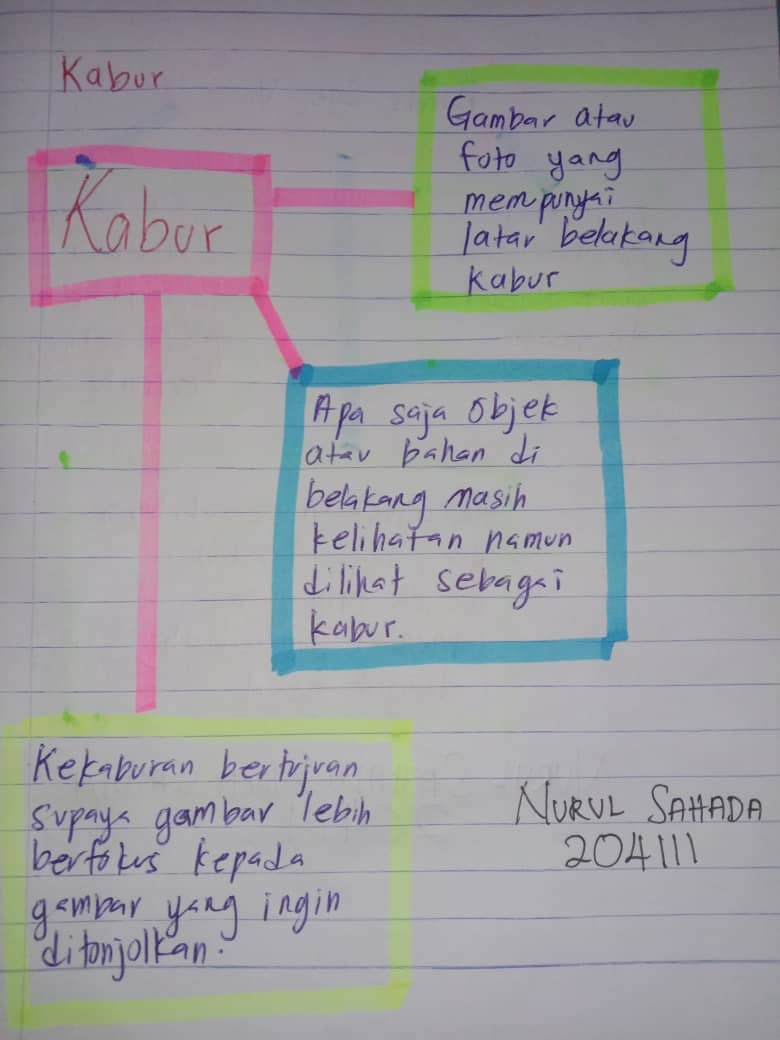 Kabur
Kabur
Gambar atau
foto yang
mempunyai
latar belakang
kabur
Apa saja objek
atau bahan di
belakang masih
kelihatan namun
dilihat sebagai
kabur.
Kekaburan bertujuan
supaya gambar lebih
berfokus kepada
gambar yang ingin
ditonjolkan.
NURUL SAHADA
204111